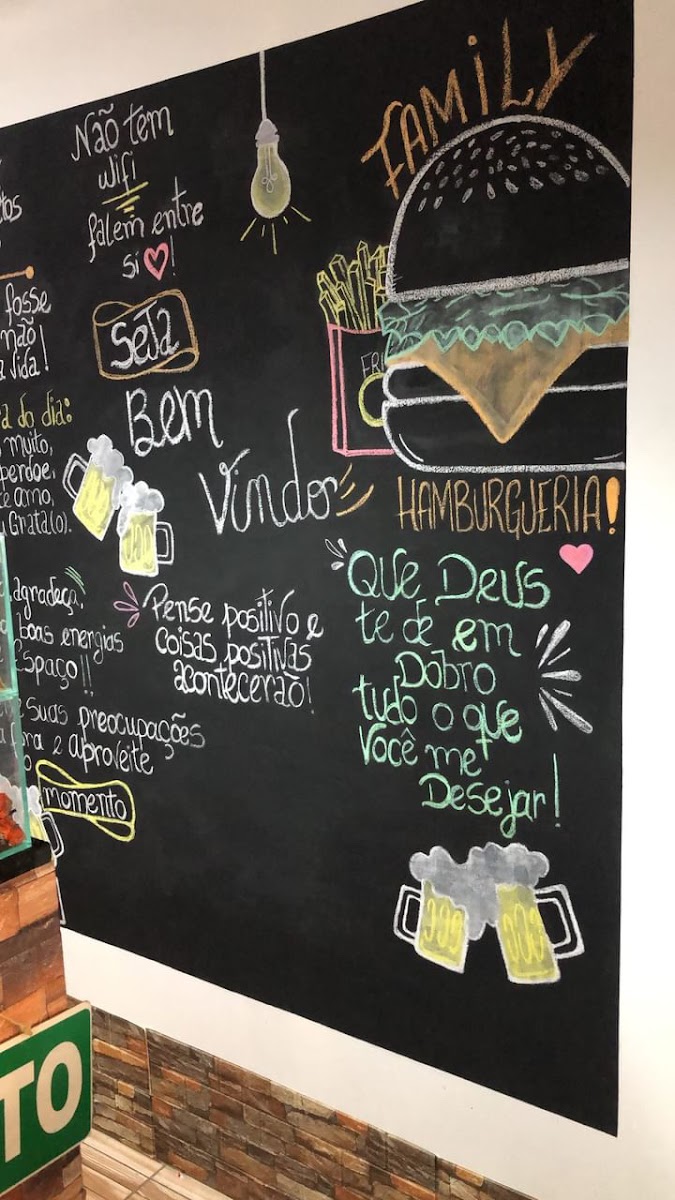 Não tem
wifi
falem entre
si !
SeJa
Bem
Vindos
FAMiLY
FRI
HAMBURGUERIA!
fosse
não!
a vida!
do dia:
muito,
perdoe,
te amo,
Grata(o).
agradeça,
boas energias
Espaço!!
suas preocupações
e aproveite
momento
Pense positivo e
coisas positivas
acontecerão!
Que Deus
te dê em
Dobro
tudo o que
Você me
Desejar!
TO